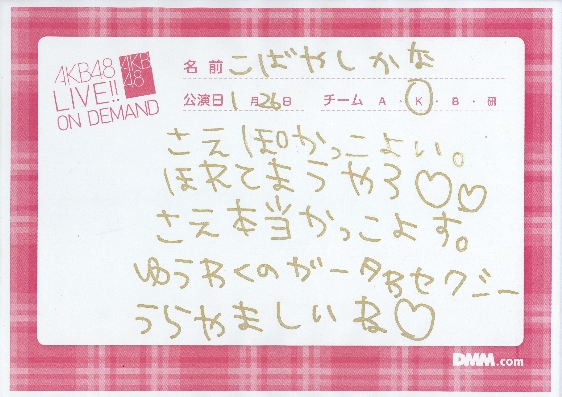 AKB48
LIVE!!
ON DEMAND
AKB
48
名前 こばやしかな
公演日 1月26日 チーム A・K・B・研
さえぽかっこよい。
ほれてまうやろ♡♡
さえ本当かっこよす。
ゆうわくのガータBセクジー
うらやましいね♡
DMM.com